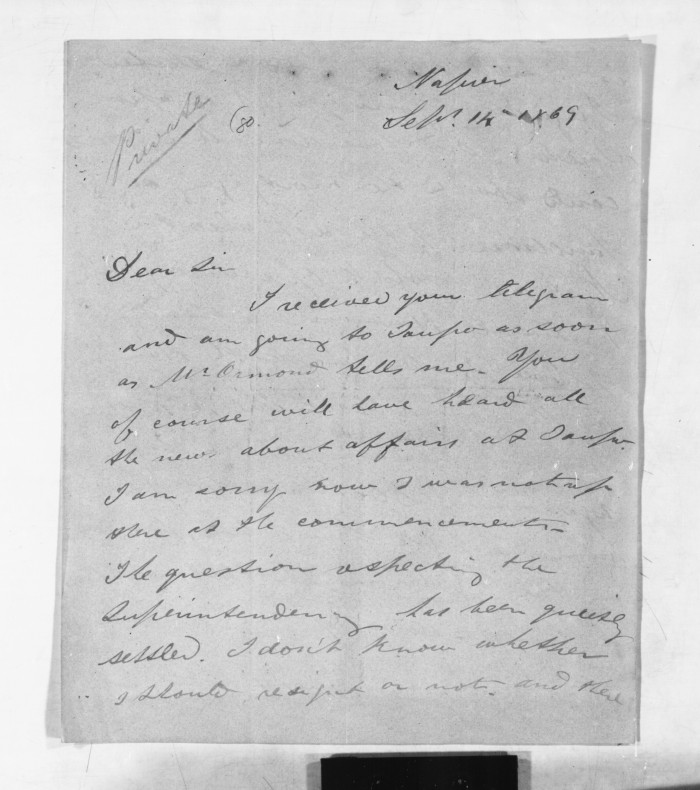 Private
(80.
Napier
Sept. 14 1869
Dear Sir
I received your telegram
and am going to Taupo as soon
as Mr Ormond tells me. You
of course will have heard all
the news about affairs at Taupo.
I am sorry now I was not up
there at the commencement.
The question respecting the
Superintendency has been quietly
settled. I don't know whether
I should resign it or not. and there